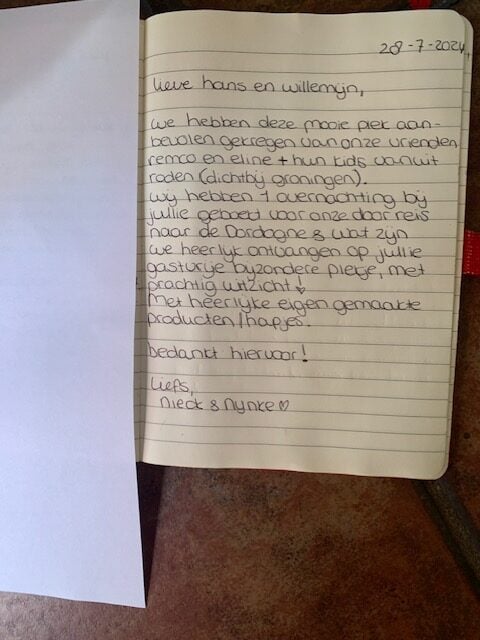 28-7-2024
Lieve hans en willemijn,
we hebben deze mooie plek aan-
bevolen gekregen van onze vrienden
remco en eline + hun kids vanuit
roden (dichtbij groningen).
wij hebben 1 overnachting bij
jullie geboekt voor onze door reis
naar de Dordogne & wat zijn
we heerlijk ontvangen op jullie
gastvrije bijzondere plekje, met
prachtig uitzicht!
Met heerlijke eigen gemaakte
producten/hapjes.
bedankt hiervoor!
Liefs,
Nieck & Nynke ♡